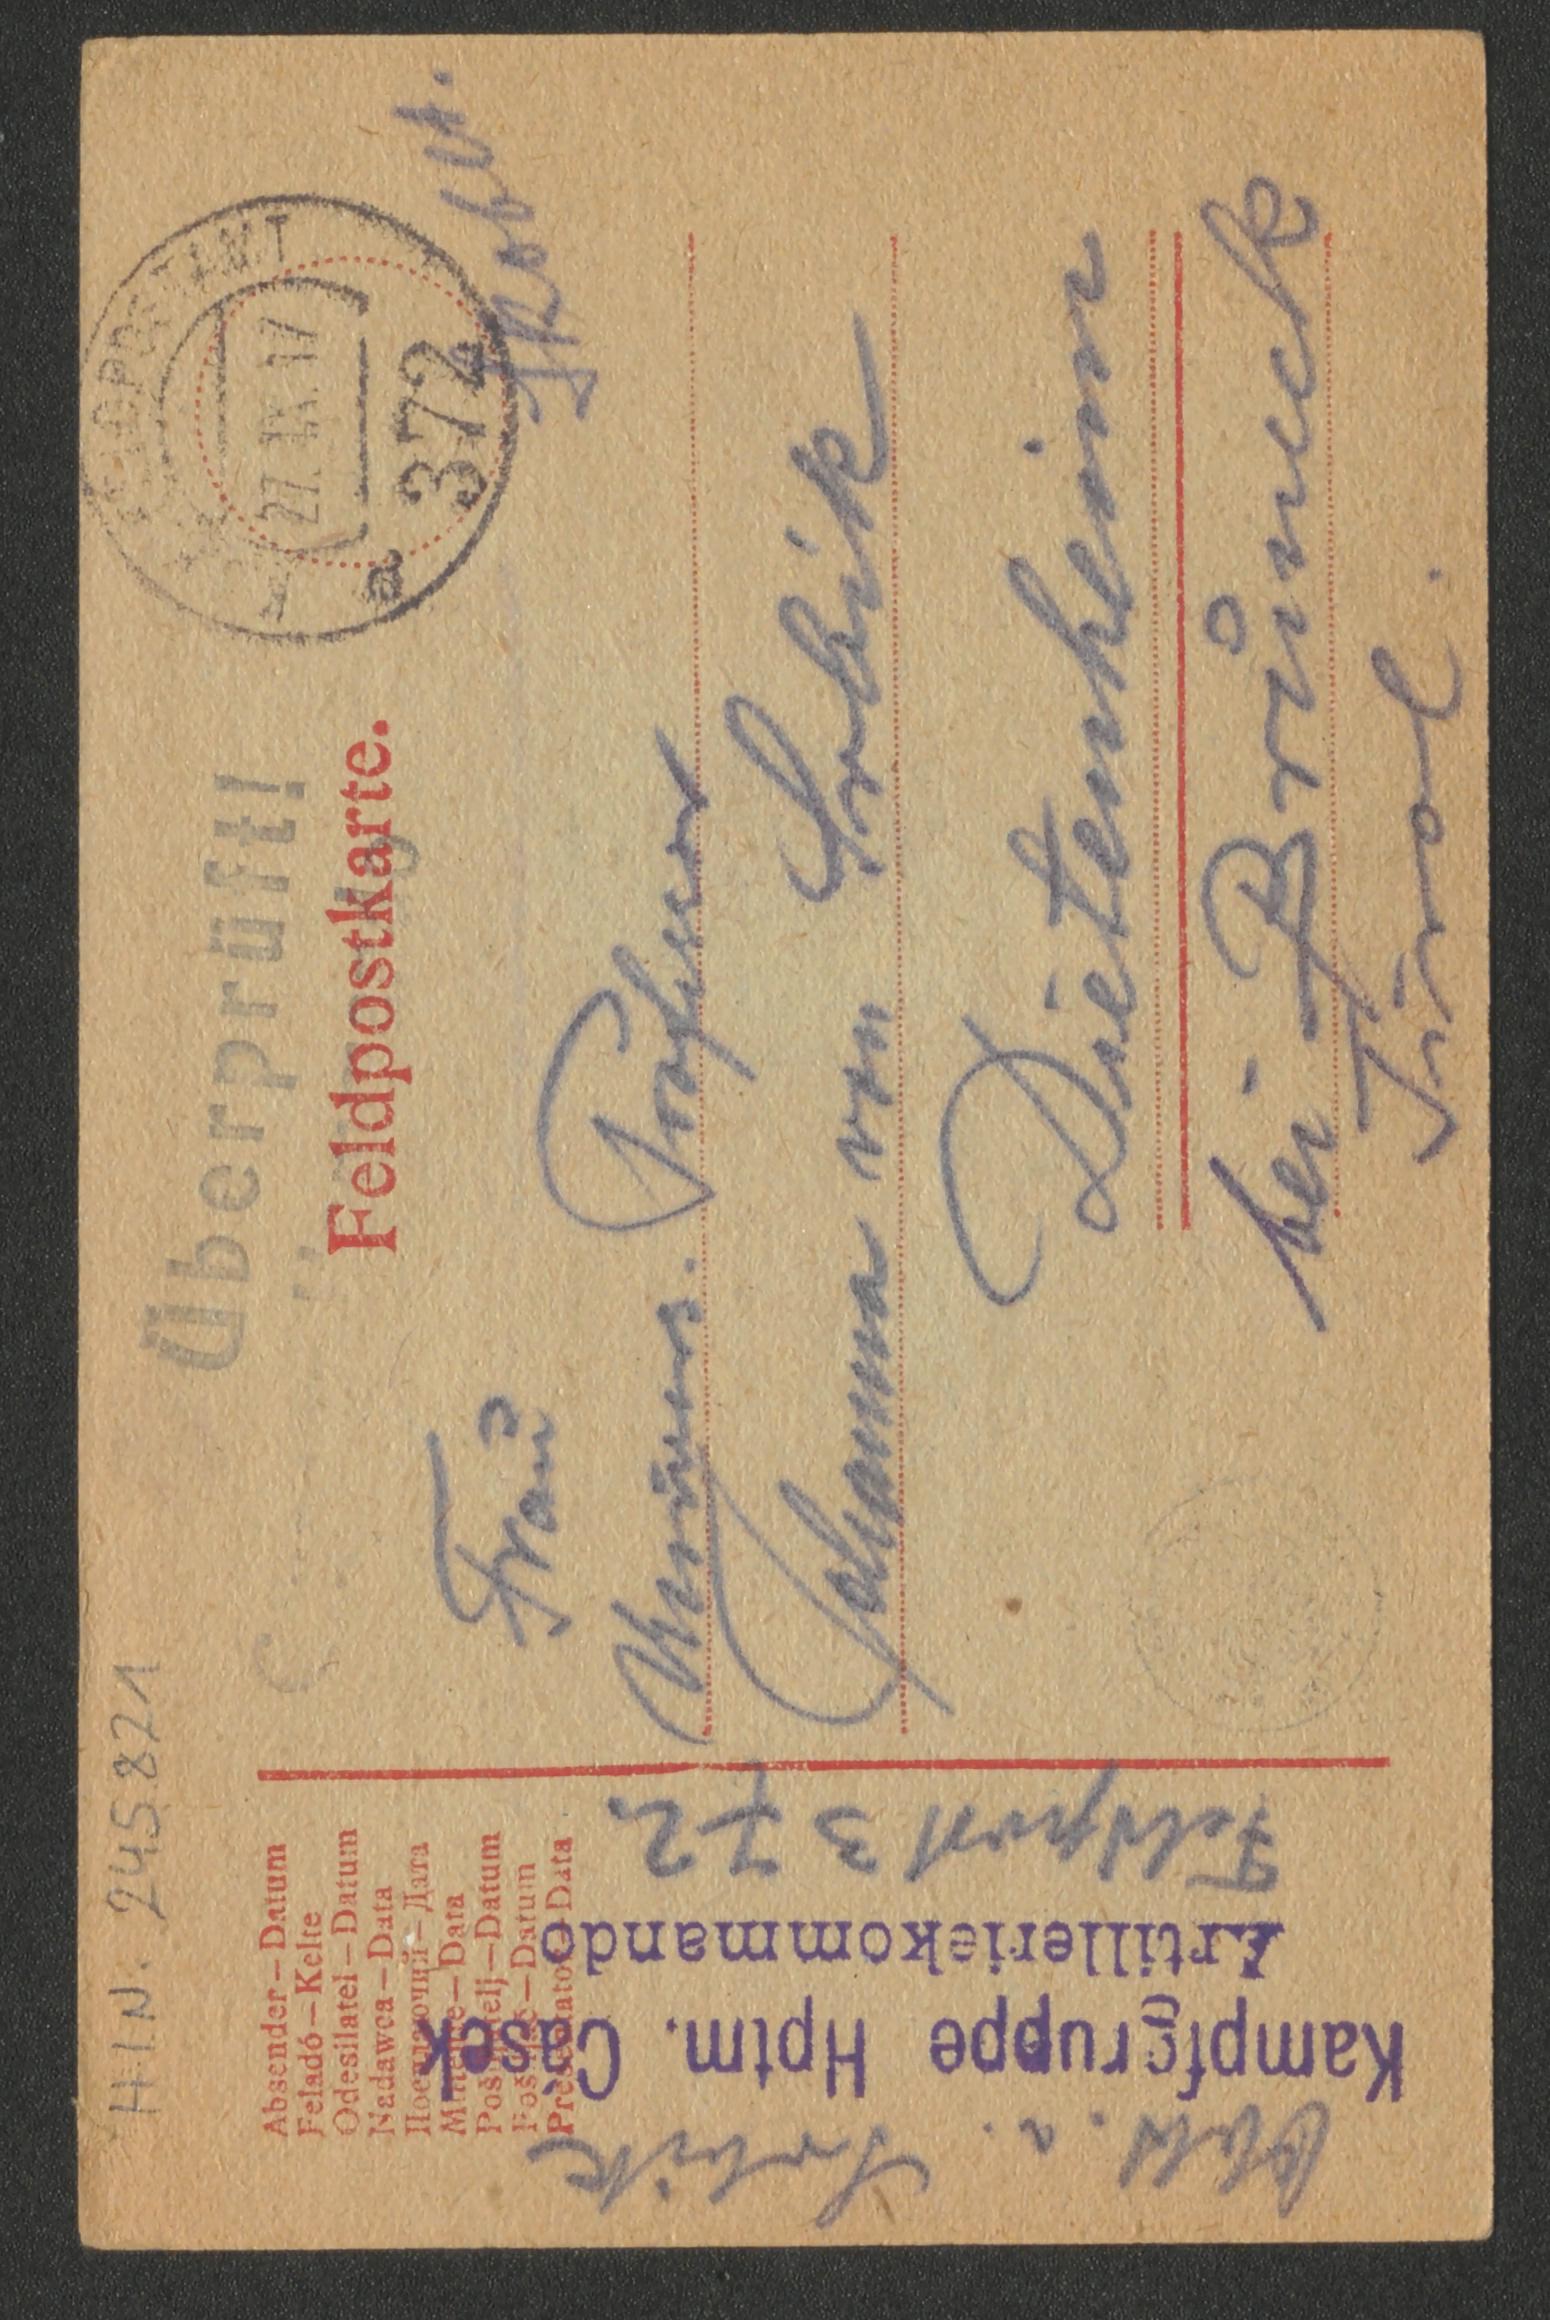 H.I.N. 245821
Überprüft!
Feldpostkarte.
K.u.K. FELDPOSTAMT
27. IX. 17
a
372
Frau
Univers. Professor
Johanna von Srbik
Dietenheim
bei Bruneck
Tirol.
Absender—Datum
Feladó—Kelte
Odesilatel—Datum
Nadawca—Data
Посилаючий—Дата
Mittente—Data
Pošiljatelj—Datum
Pošiljač—Datum
Presentator—Data
Srbik
Kampfgruppe Hptm. Casek
Artilleriekommando
Feldpost 372.